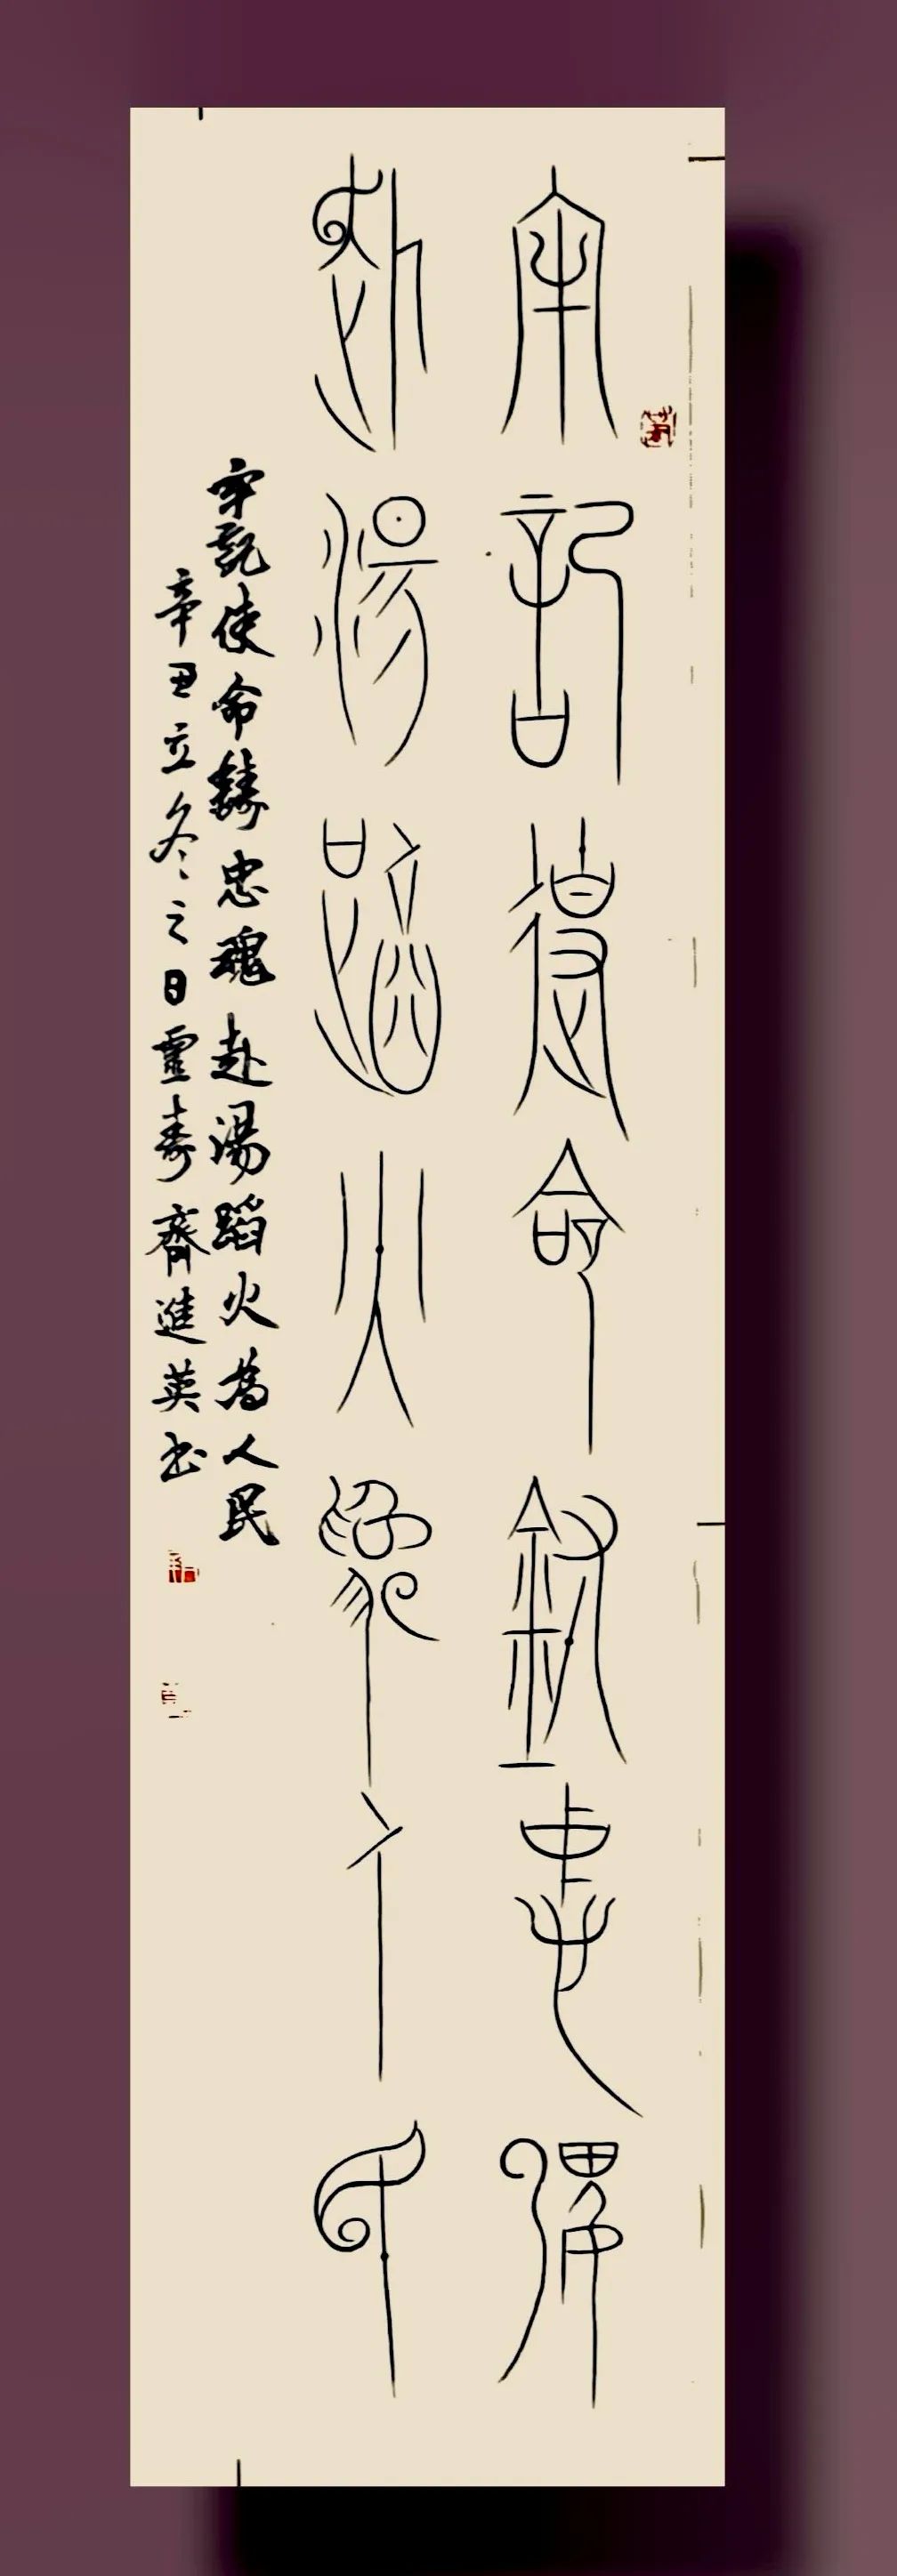 牢記使命鑄忠魂
赴湯蹈火為人民
牢記使命鑄忠魂赴湯蹈火為人民
辛丑立冬之日靈壽齊進英书